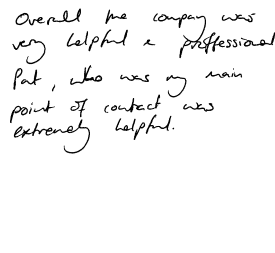 Overall the company was
very helpful & proffessional
Pat, who was my main
point of contact was
extremely helpful.